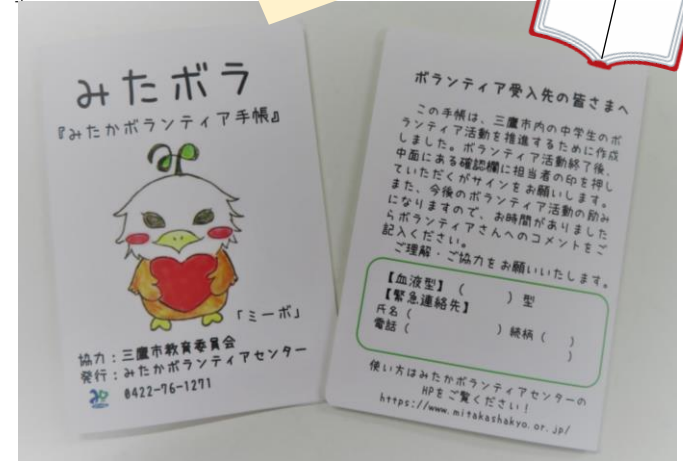 みたボラ
『みたかボランティア手帳』
「ミーボ」
協力：三鷹市教育委員会
発行：みたかボランティアセンター
0422-76-1271
ボランティア受入先の皆さまへ
この手帳は、三鷹市内の中学生のボ
ランティア活動を推進するために作成
しました。ボランティア活動終了後、
中面にある確認欄に担当者の印を押し
ていただくがサインをお願いします。
また、今後のボランティア活動の励み
になりますので、お時間がありました
らボランティアさんへのコメントをご
記入ください。
ご理解・ご協力をお願いいたします。
【血液型】（　　）型
【緊急連絡先】
氏名（　　　　　　）続柄（　）
電話（　　　　　　　　　　　）
使い方はみたかボランティアセンターの
HPをご覧ください！
https://www.mitakashakyo.or.jp/